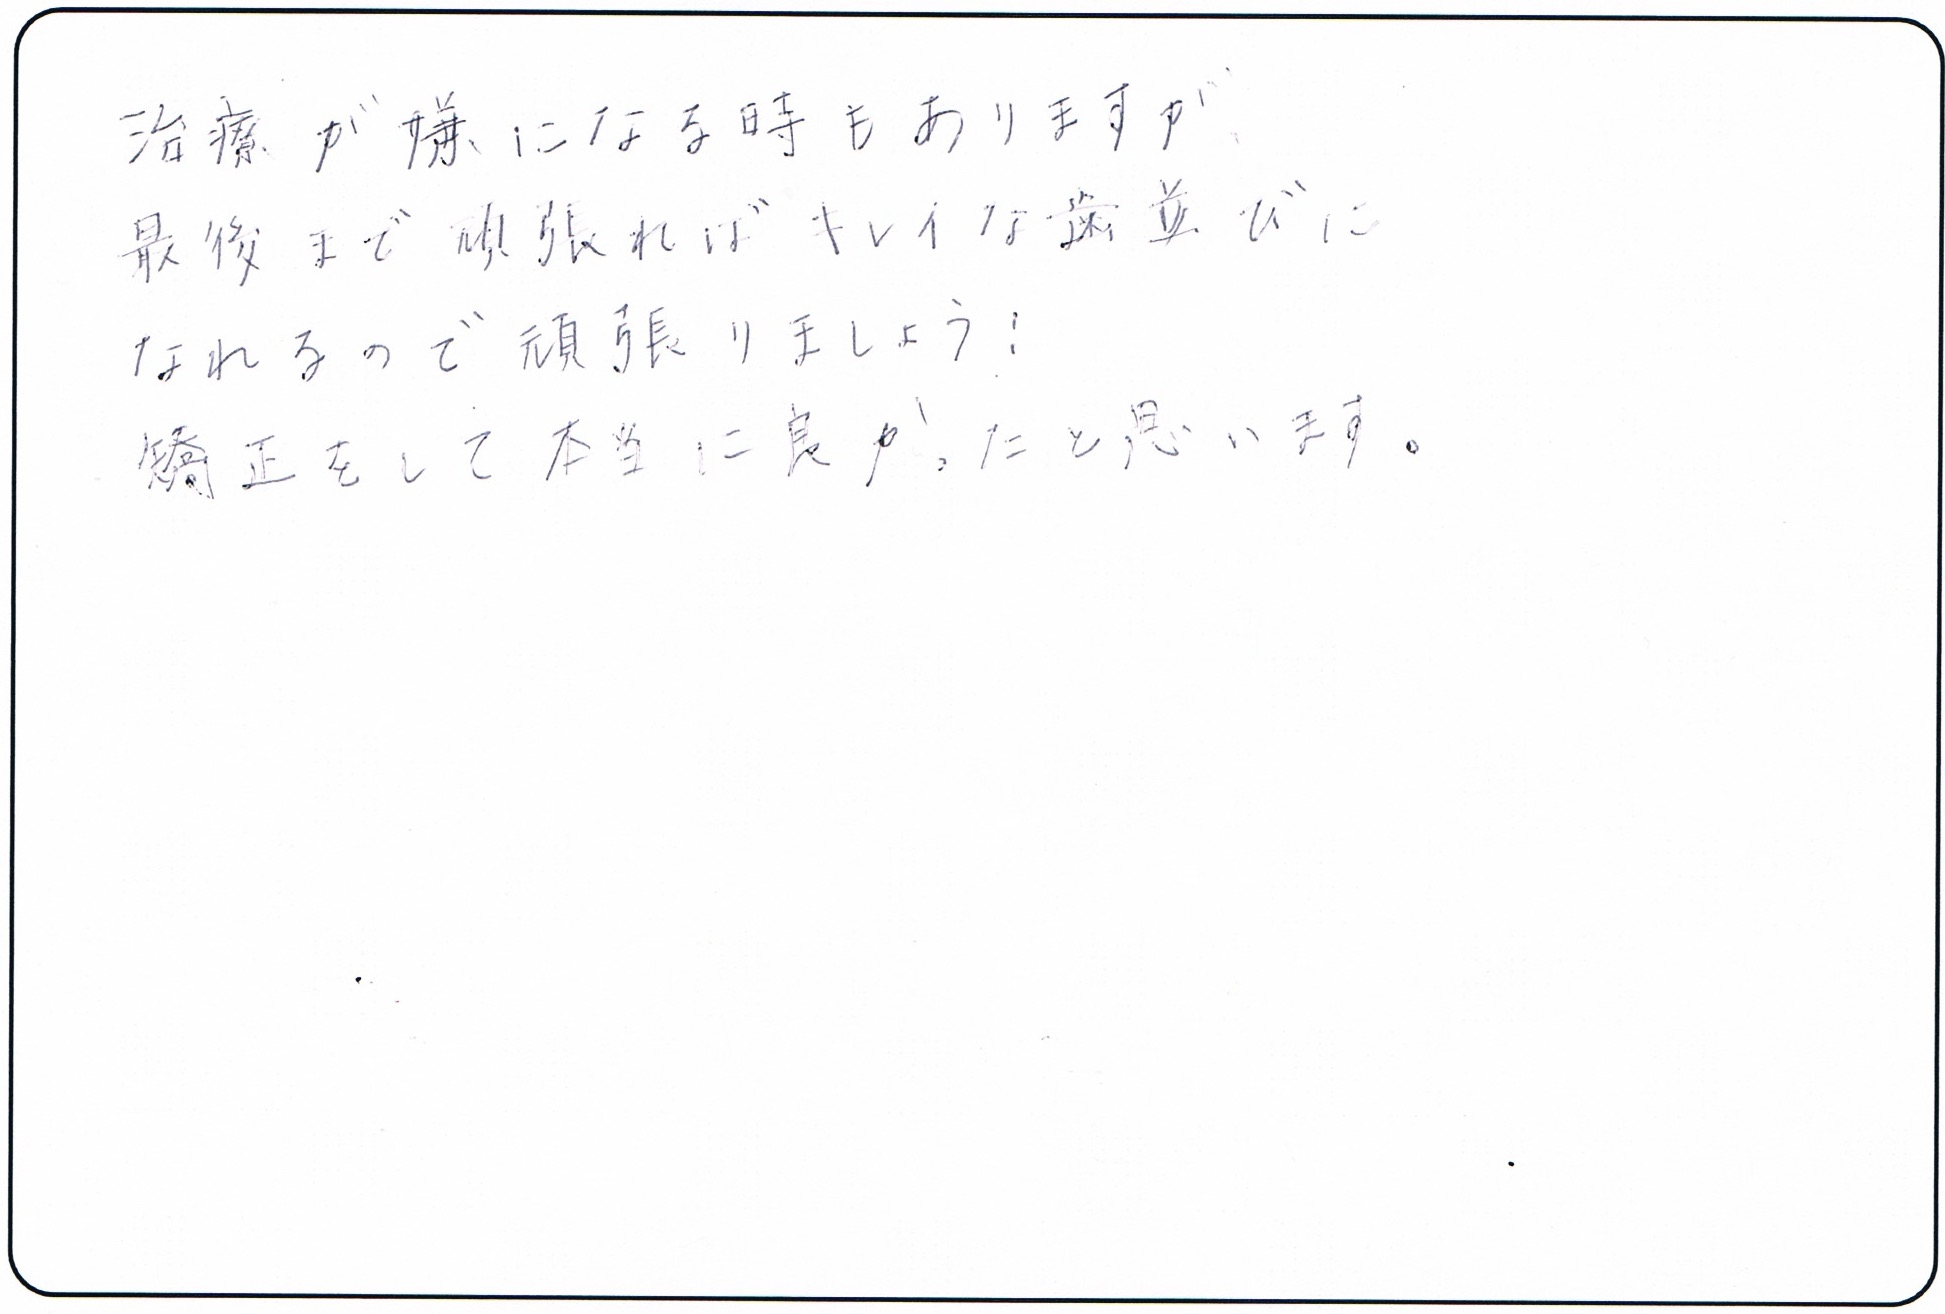 治療が嫌になる時もありますが、
最後まで頑張ればキレイな歯並びに
なれるので頑張りましょう!
矯正をして本当に良かったと思います。